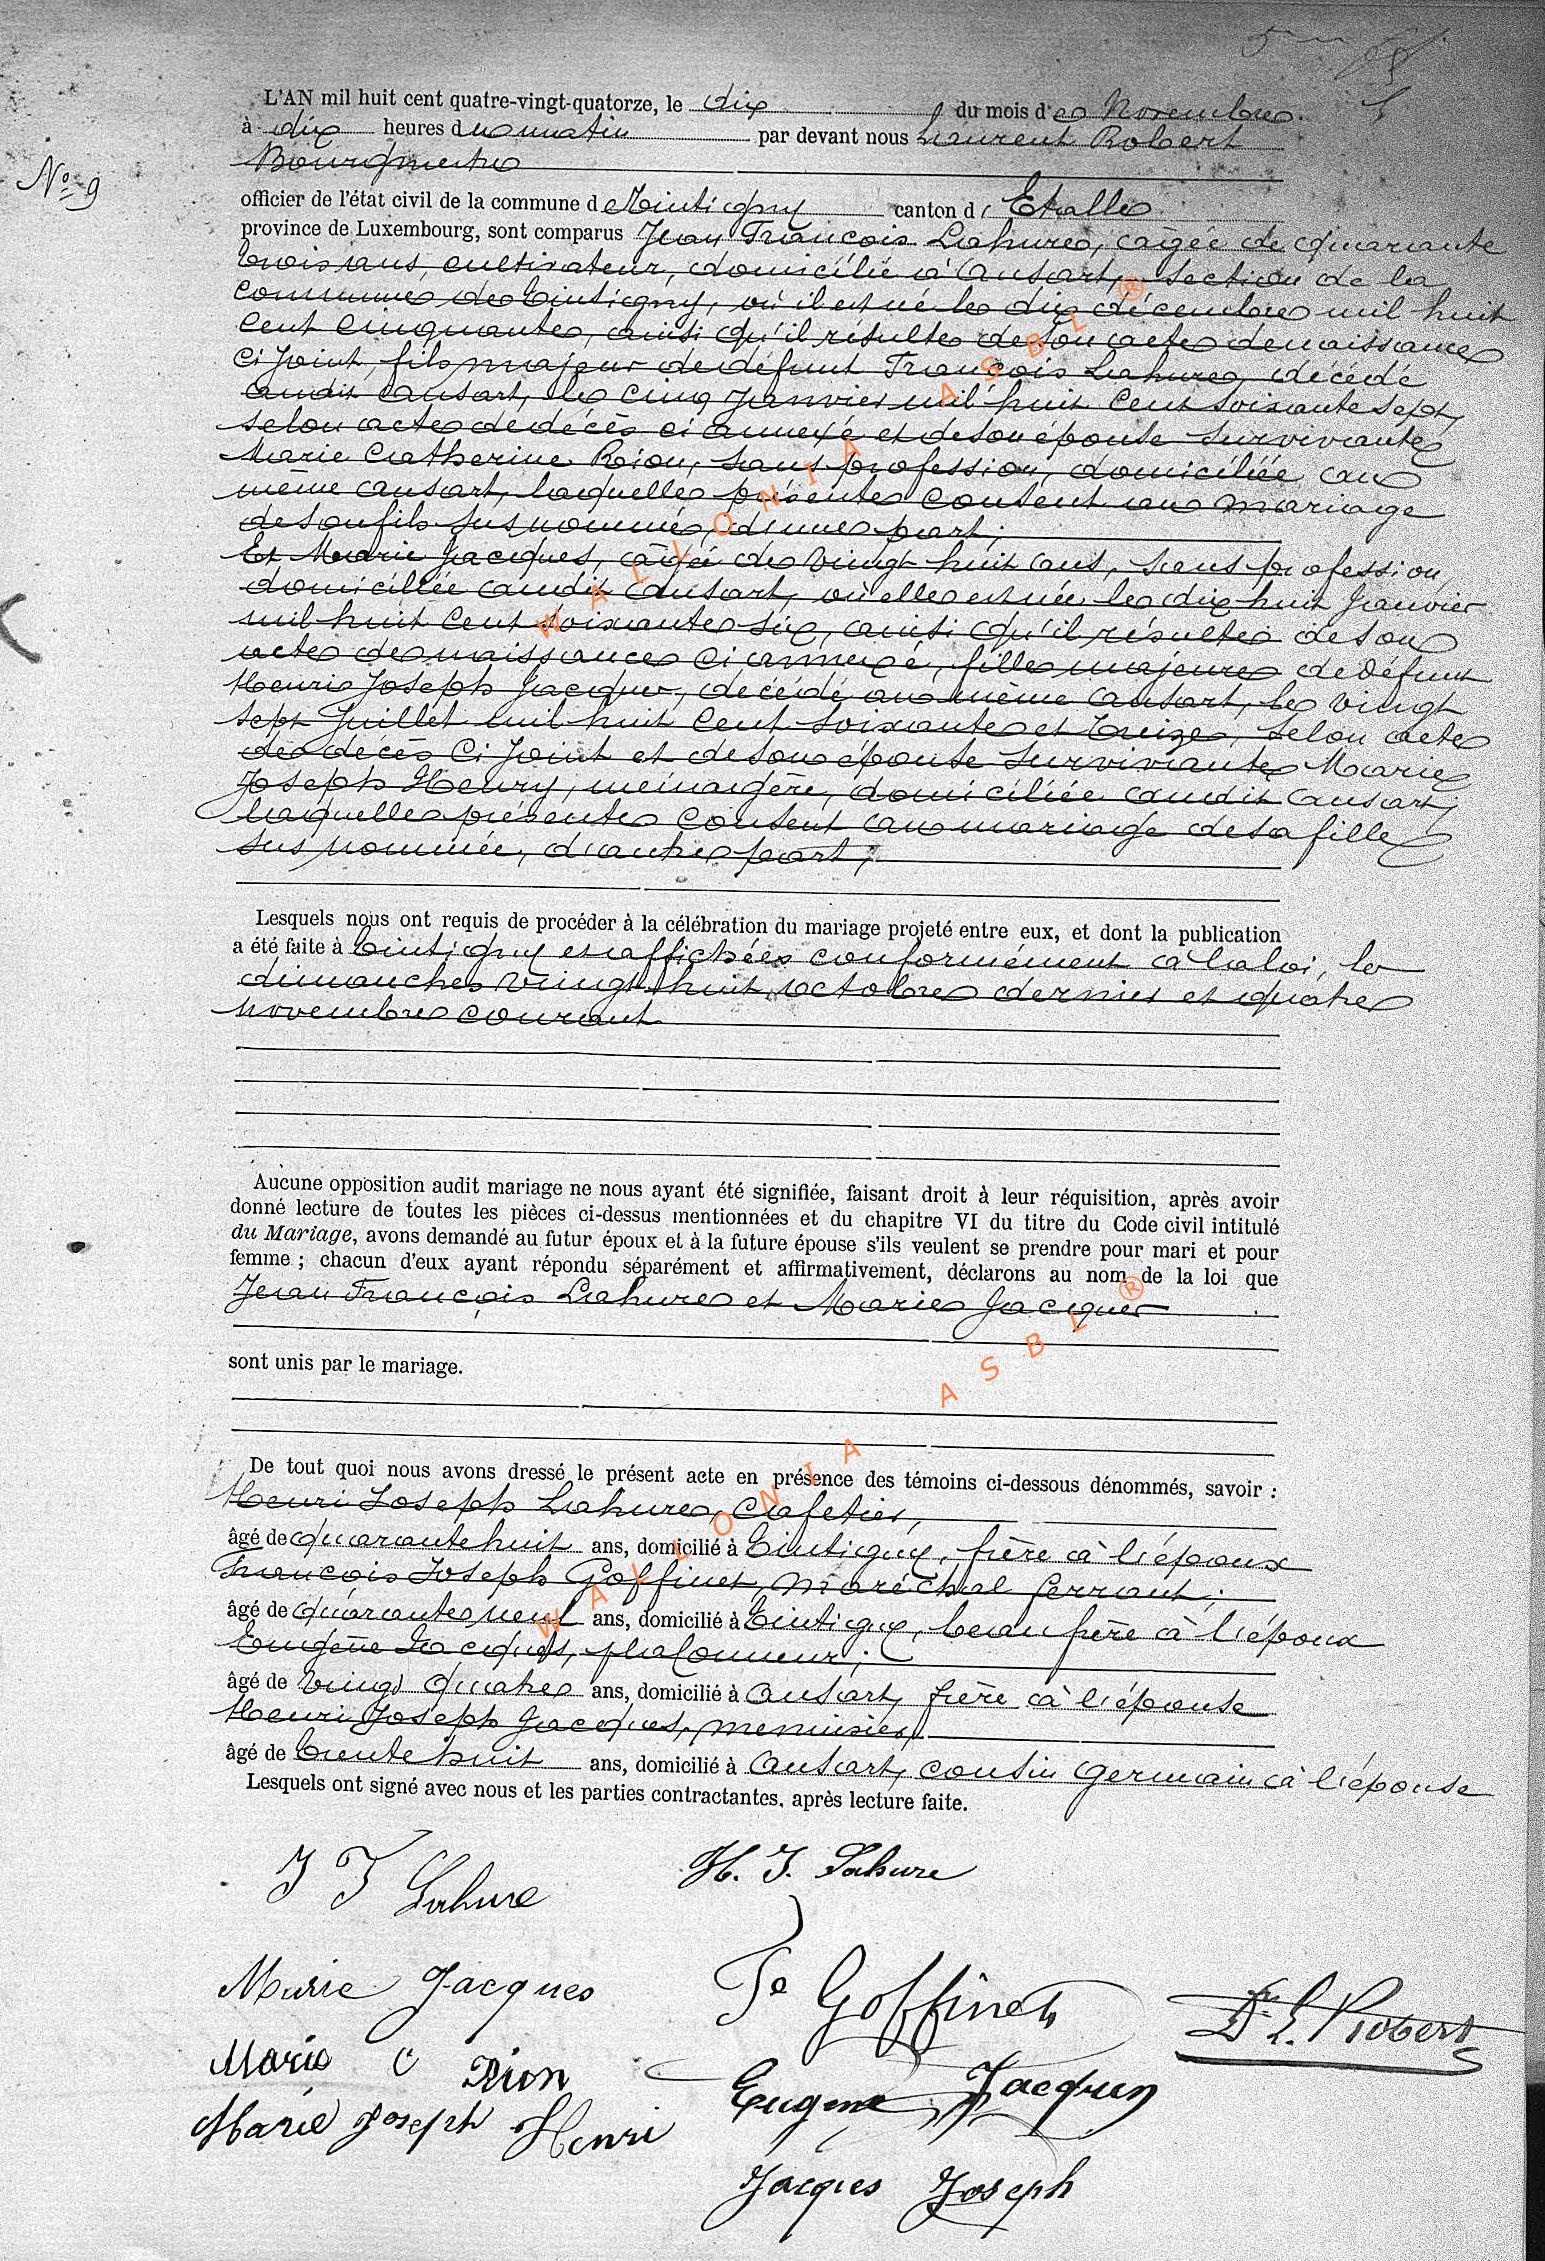 L'AN mil huit cent quatre-vingt-quatorze, le dix du mois de Novembre
à dix heures du matin par devant nous Laurent Robert
Bourgmestre
N° 9
officier de l'état civil de la commune d Tintigny canton d' Etalle
province de Luxembourg, sont comparus Jean François Lahure, âgé de quarante
trois ans, cultivateur, domicilié à Ansart, section de la
commune de Tintigny, où il est né le dix décembre mil huit
cent cinquante, ainsi qu'il résulte de son acte de naissance
ci joint, fils majeur de défunt François Lahure, décédé
audit Ansart, le cinq Janvier mil huit cent soixante sept,
selon acte de décès ci annexé et de son épouse survivante
Marie Catherine Rion, sans profession, domiciliée au
même Ansart, laquelle présente consent au mariage
de son fils sus nommé, d'une part;
Et Marie Jacques, âgée de vingt huit ans, sans profession,
domiciliée audit Ansart, où elle est née le dix huit Janvier
mil huit cent soixante six, ainsi qu'il résulte de son
acte de naissance ci annexé, fille majeure de défunt
Henri Joseph Jacques, décédé au même Ansart, le vingt
sept Juillet mil huit cent soixante et treize, selon acte
de décès ci joint et de son épouse survivante Marie
Joseph Henry, ménagère, domiciliée audit Ansart,
laquelle présente consent au mariage de sa fille
sus nommée, d'autre part;
Lesquels nous ont requis de procéder à la célébration du mariage projeté entre eux, et dont la publication
a été faite à Tintigny et affichées conformément à la loi, les
dimanches vingt huit octobre dernier et quatre
novembre courant
Aucune opposition audit mariage ne nous ayant été signifiée, faisant droit à leur réquisition, après avoir
donné lecture de toutes les pièces ci-dessus mentionnées et du chapitre VI du titre du Code civil intitulé
du Mariage, avons demandé au futur époux et à la future épouse s'ils veulent se prendre pour mari et pour
femme ; chacun d'eux ayant répondu séparément et affirmativement, déclarons au nom de la loi que
Jean François Lahure et Marie Jacques
sont unis par le mariage.
De tout quoi nous avons dressé le présent acte en présence des témoins ci-dessous dénommés, savoir :
Henri Joseph Lahure, cafetier,
âgé de quarante huit ans, domicilié à Tintigny, frère à l'époux
François Joseph Goffinet, maréchal ferrant;
âgé de quarante neuf ans, domicilié à Tintigny, beau frère à l'époux
Eugène Jacques, plafonneur;
âgé de vingt quatre ans, domicilié à Ansart, frère à l'épouse
Henri Joseph Jacques, menuisier,
âgé de trente huit ans, domicilié à Ansart, cousin germain à l'épouse
Lesquels ont signé avec nous et les parties contractantes, après lecture faite.
J F Lahure
H. J. Lahure
Marie Jacques
Goffinet
Dr L. Robert
Marie C Rion
Eugène Jacques
Marie Joseph Henri
Jacques Joseph
WALLONIA ASBL ®
WALLONIA ASBL ®